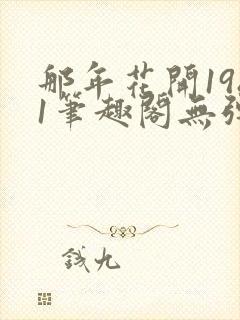 那年花開19
1筆趣閣無彈
錢九